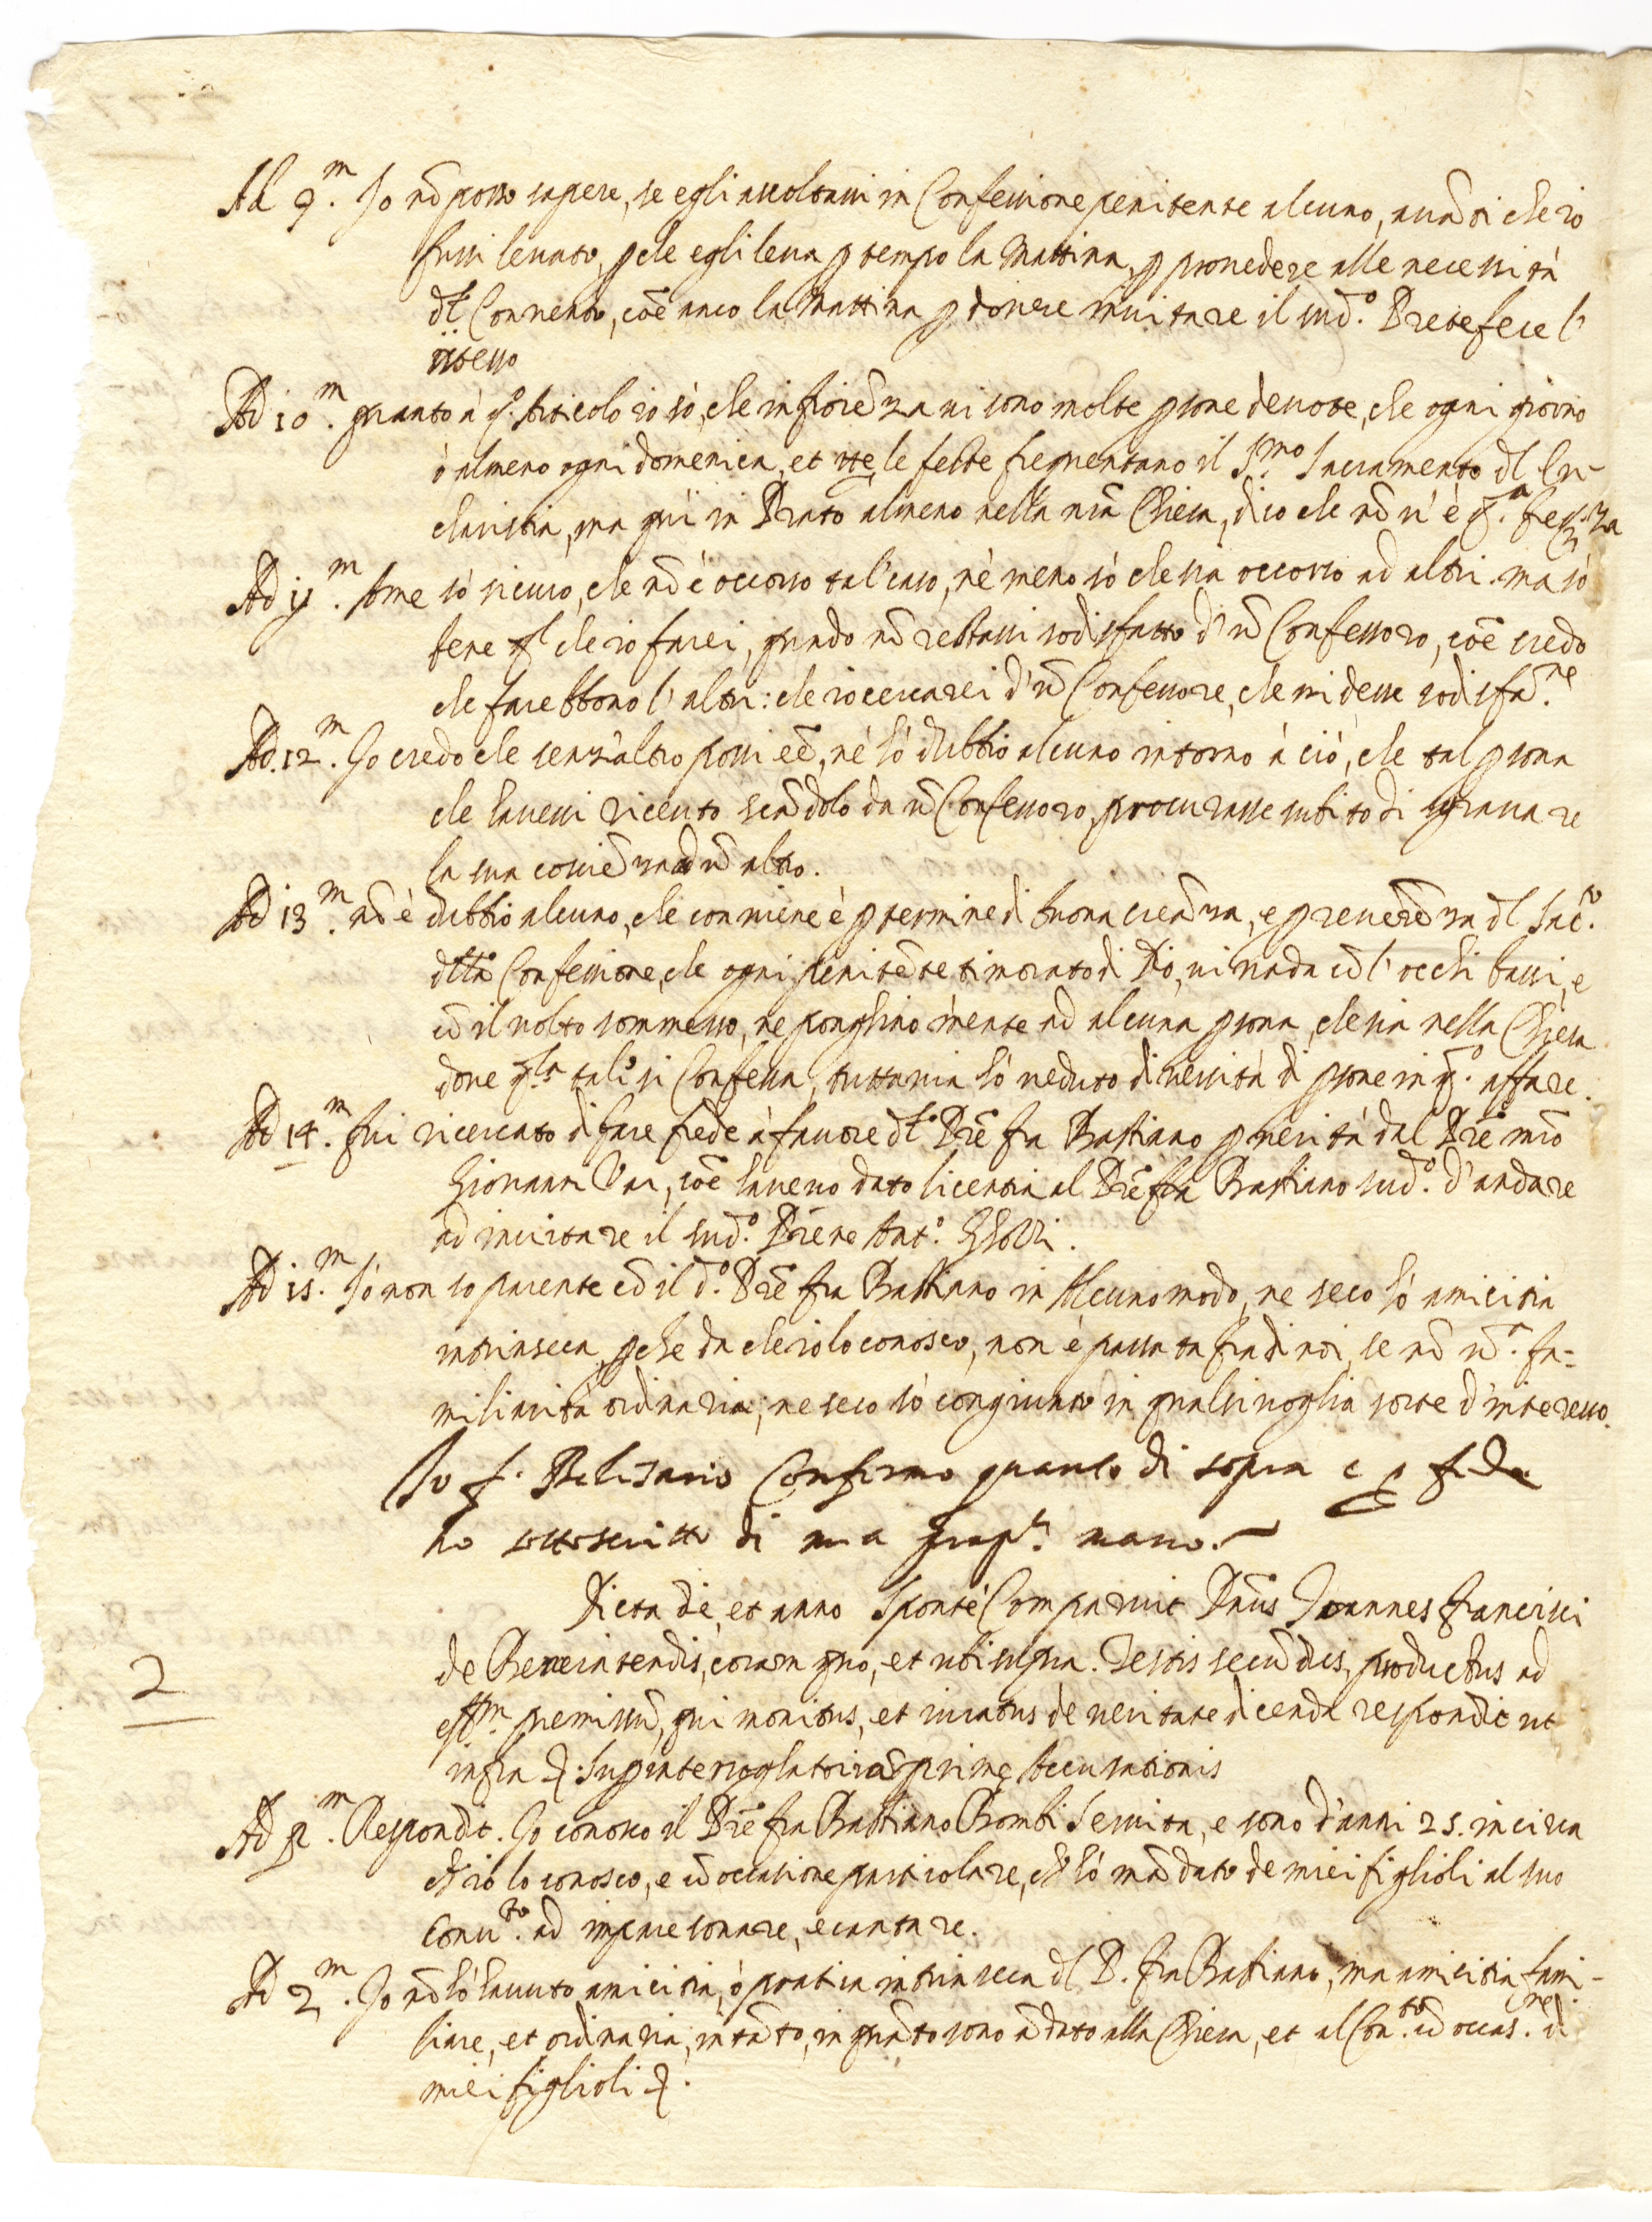 Ad 9.m Io nõ posso sapere, se egli ascoltassi in Confessione penitente alcuno, auãti che io
fussi leuato, pche egli leua p tempo la Mattina, p prouedere alle necessità
dl Conuento, cõe anco la Mattina p douere inuitare il sud.o Prete fece l'
istesso
Ad 10.m quanto à q.o Articolo io sò, che in fiorẽza ui sono molte psone deuote, che ogni giorno
ò almeno ogni domenica, et tte le feste frequentano il S.mo Sacramento dl Eu-
charistia, ma qui in Prato almeno nella nrã Chiesa, dico che nõ u'è q.a freq.za
Ad 11.m A me sò sicuro, che nõ è occorso tal' caso, nè meno sò che sia occorso ad altri. ma sò
bene ql che io farei, quando nõ restassi sodisfatto d'ũ Confessoro, cõe credo
che farebbono l'altri: che io cercarei d'ũ Confessore, che mi desse sodisfa.ne
Ad. 12.m Io credo che senz'altro possi eẽ, nè hò dubbio alcuno intorno à ciò, che tal psona
che hauessi riceuto scãdolo da ũ Confessoro, procurasse subito di sgrauare
la sua cosciẽza ad ũ altro.
Ad 13.m nõ è dubbio alcuno, che conuiene è p termine di buona creãza, e p reuerẽza dl Sac.to
dlla Confessione, che ogni penitẽte timorato di Dio, ui uada cõ l'occhi bassi, e
cõ il uolto sommesso, ne ponghino mente ad alcuna psona, che sia nella Chiesa
doue q.la tal' si Confessa, tuttauia hò ueduto diuersità di psone in q.o affare.
Ad 14.m fui ricercato di fare fede à fauore dl Prẽ fra Bastiano p uerità dal Prẽ mrõ
Giouanni Vai, cõe haueuo dato licentia al Prẽ fra Bastiano sud.o d'andare
ad inuitare il sud.o Prẽte Ant.o
Ad 15.m Io non so parente cõ il d.o Prẽ fra Bastiano in Alcuno modo, ne seco hò amicitia
intrinseca, pche da che io lo conosco, non è passata fra di noi, se nõ ũ.a fa=
miliarità ordinaria; ne seco sò congiunto in qualsiuoglia sorte d'interesso.
Io f. Belisario Confirmo quanto di sopra e p fede
ho sottoscritto di mia prop.a mano.
Dicta die, et anno Sponte Comparuit Dñus Joannes francisci
de coram quo, et ubi supra. Testis secũdus, productus ad
premissũ, qui monitus, et iuratus de ueritate dicenda respondit ut
infra &. Sup interrogatoria prime Accusationis
Ad p.m Respondit. Io conosco il Prẽ fra Bastiano Bombi Seruita, e sono d'anni 25. in circa
ch'io lo conosco, e cõ occasione particolare, ch'hò mãdato de miei figlioli al suo
Conu.to ad imparesonare, e cantare.
Ad 2.m Io nõ hò hauuto amicitia, ò pratica intrinseca dl P. fra Bastiano, ma amicitia fami-
liare, et ordinaria, in tãto, in quãto sono ãdato alla Chiesa, et al Con.to cõ occas.ne di
miei figlioli &.
2